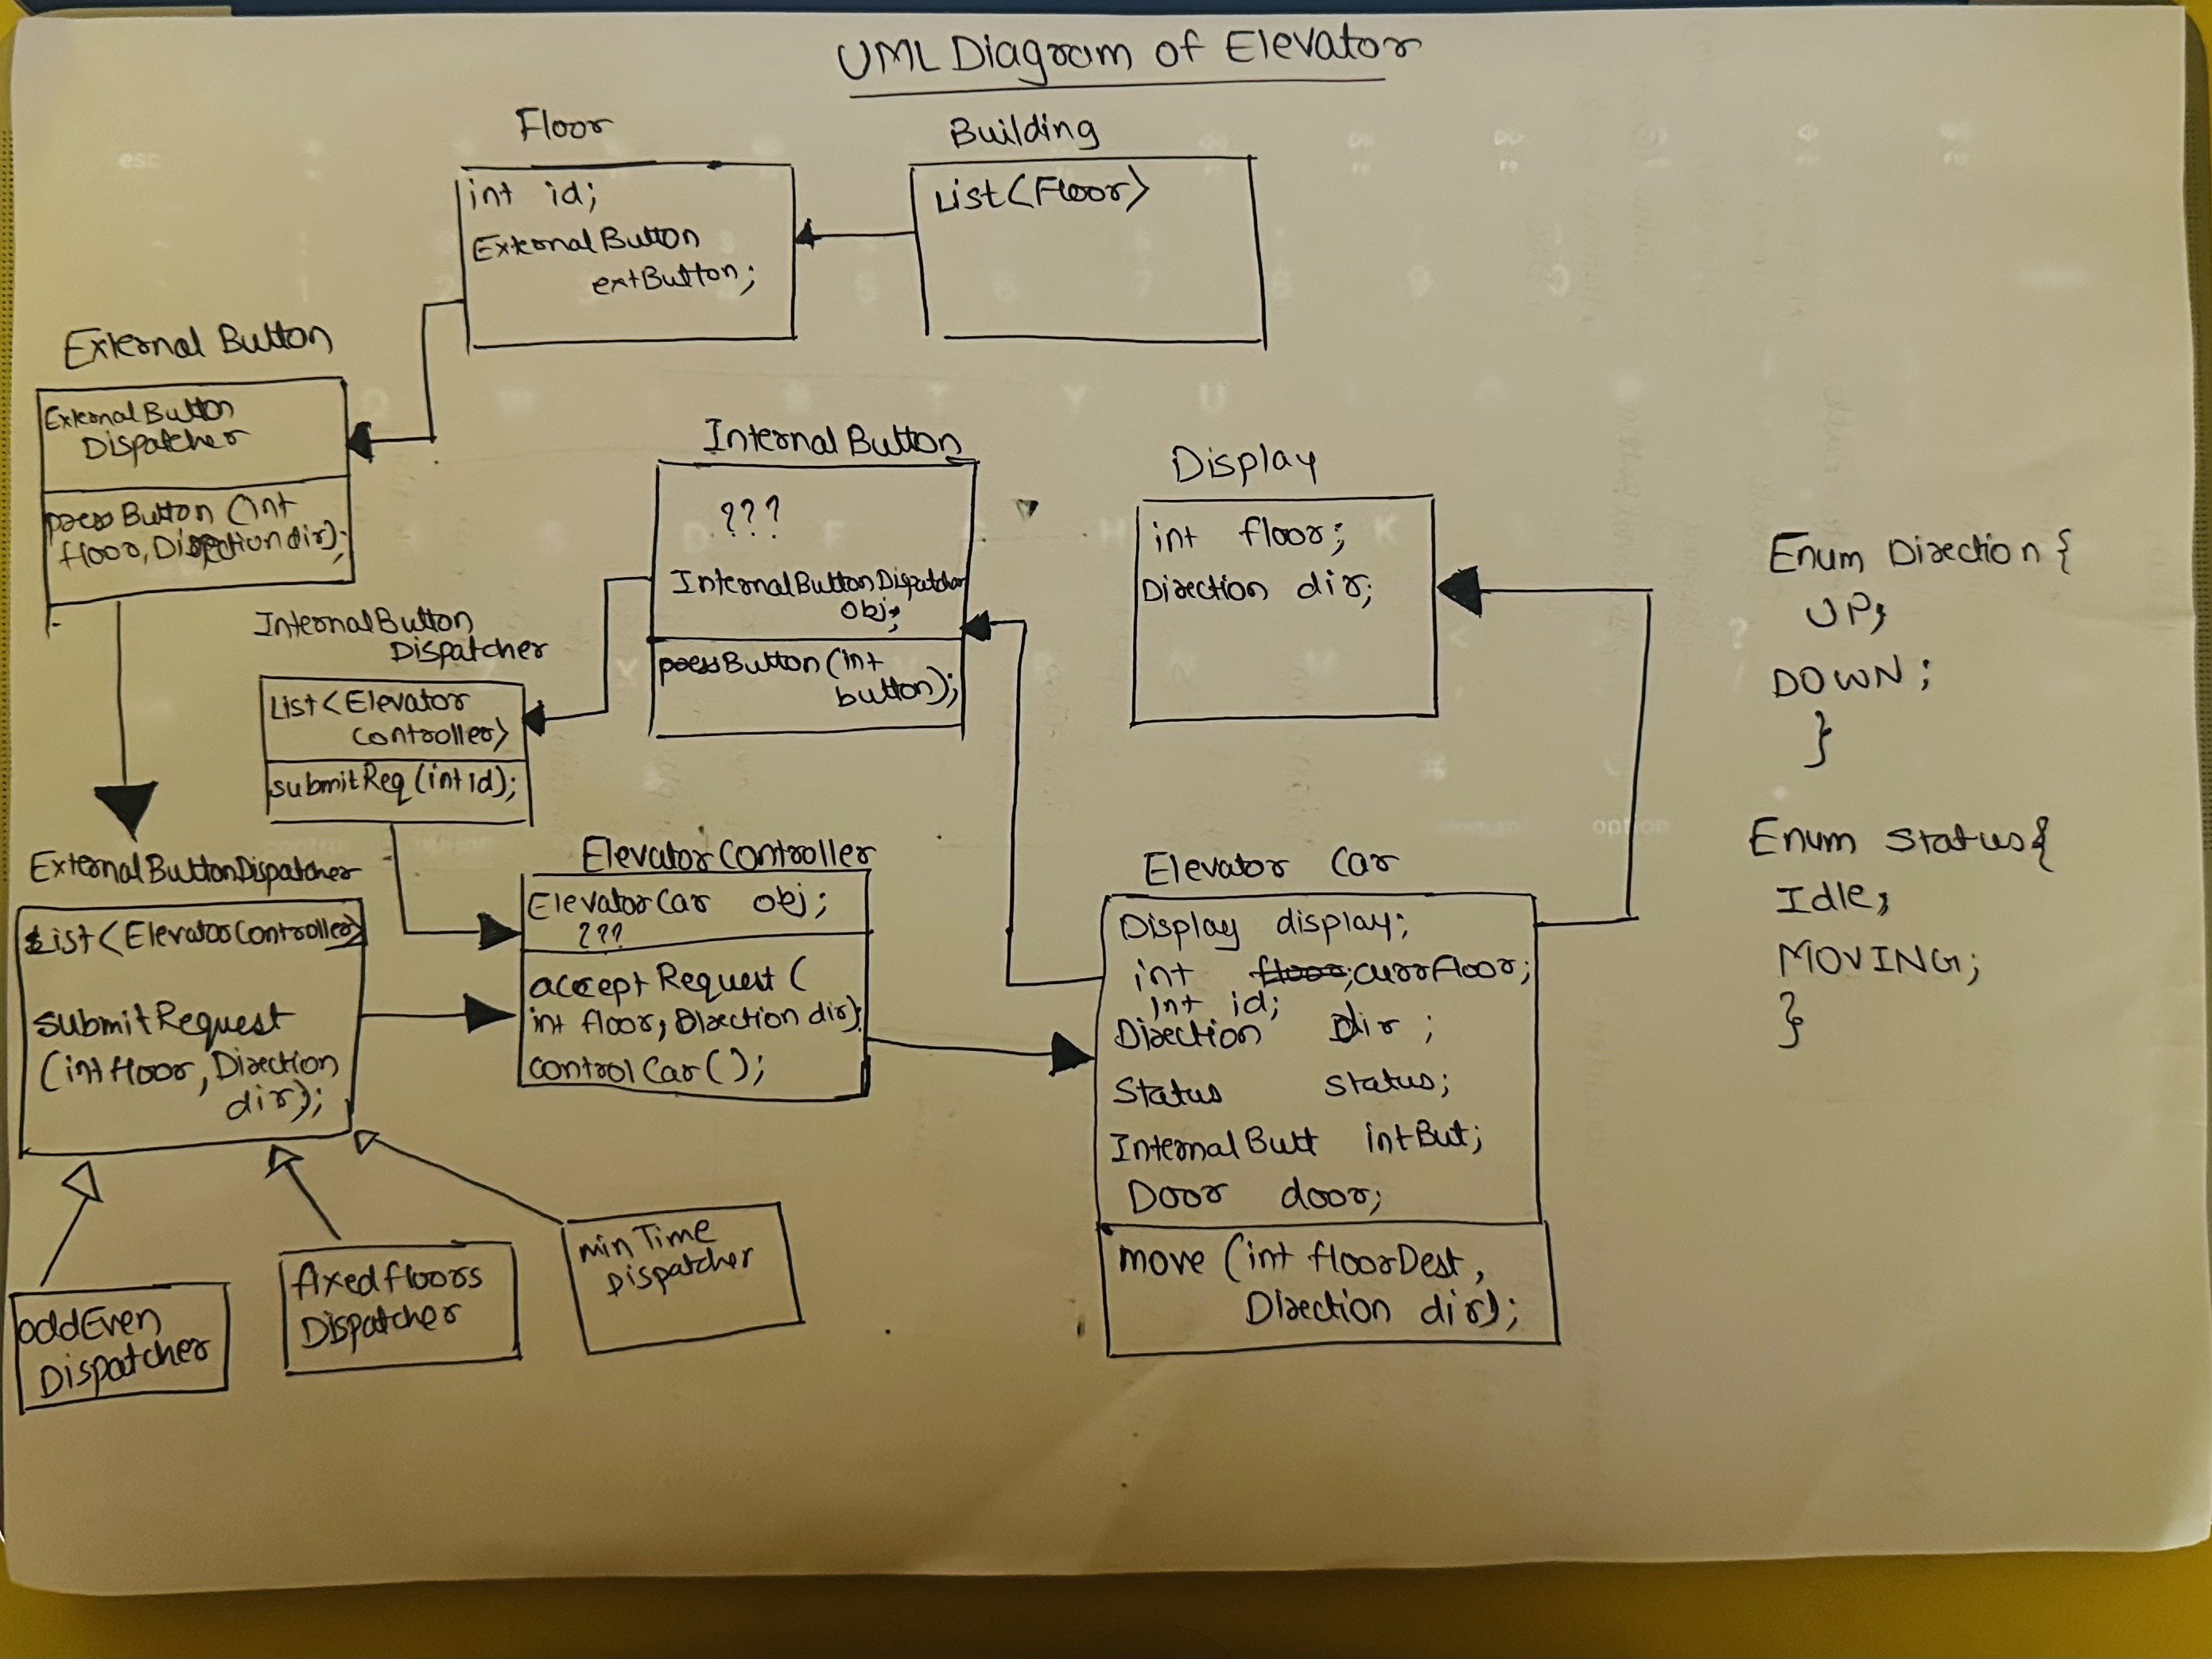 UML Diagram of Elevator
Floor
int id;
ExternalButton
extButton;
Building
List<Floor>
External Button
ExternalButton
Dispatcher
pressButton (int
floor, Direction dir);
InternalButton
???
InternalButtonDispatcher
obj;
pressButton (int
button);
Display
int floor;
Direction dir;
Enum Direction {
UP,
DOWN;
}
InternalButton
Dispatcher
List<Elevator
controller>
submitReq (int id);
ExternalButtonDispatcher
List<ElevatorController>
submitRequest
(int floor, Direction
dir);
ElevatorController
ElevatorCar obj;
???
acceptRequest (
int floor, Direction dir);
controlCar();
Elevator Car
Display display;
int floor; currFloor;
int id;
Direction Dir;
Status status;
InternalButt intBut;
Door door;
move (int floorDest,
Direction dir);
Enum Status{
Idle,
MOVING;
}
oddEven
Dispatcher
fixedfloors
Dispatcher
minTime
Dispatcher